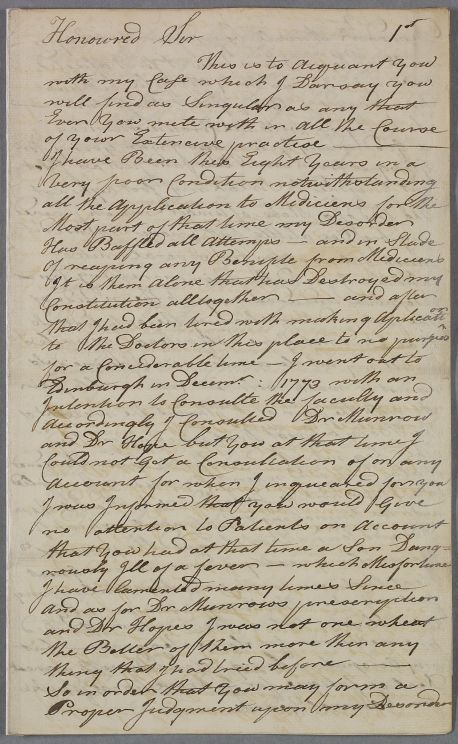 Honoured Sir 1st
This is to Acquant You
with my Case which I Darsay You
will find as Singular as any that
Ever You mete with in all the Course
of your Extencive practise
I have Been this Eight Years in a
very poor Condition notwithstanding
all the Application to Mediciens for the
Most part of that time my Desorder
Has Baffled all Attemps — and in Stade
Of reaping any Benifite from Mediciens
it is them alone that has Destroyed my
Constitution alltogether — and after
that I had been tired with making Aplication
to the Doctors in this place to no purpos
for a Considerable time — I went out to
Edinburgh in Decemr: 1773 with an
Intention to Consulte the faculty and
Accordingly I Consulted Dr Munrow
and Dr Hope but You at that time I
Could not Got a Consultation of on any
Account for when I inqueared for you
I was Informed that you would Give
no attention to Patients on Account
that You had at that time a Son Dang=
rously Ill of a fever — which Misfortune
I have lamented many times Since
And as for Dr Munrows prescription
and Dr Hopes I was not one wheat
the Better of them more then any
thing that I had tried before —
So in order that You may form a
Proper Judgment upon my Desorder